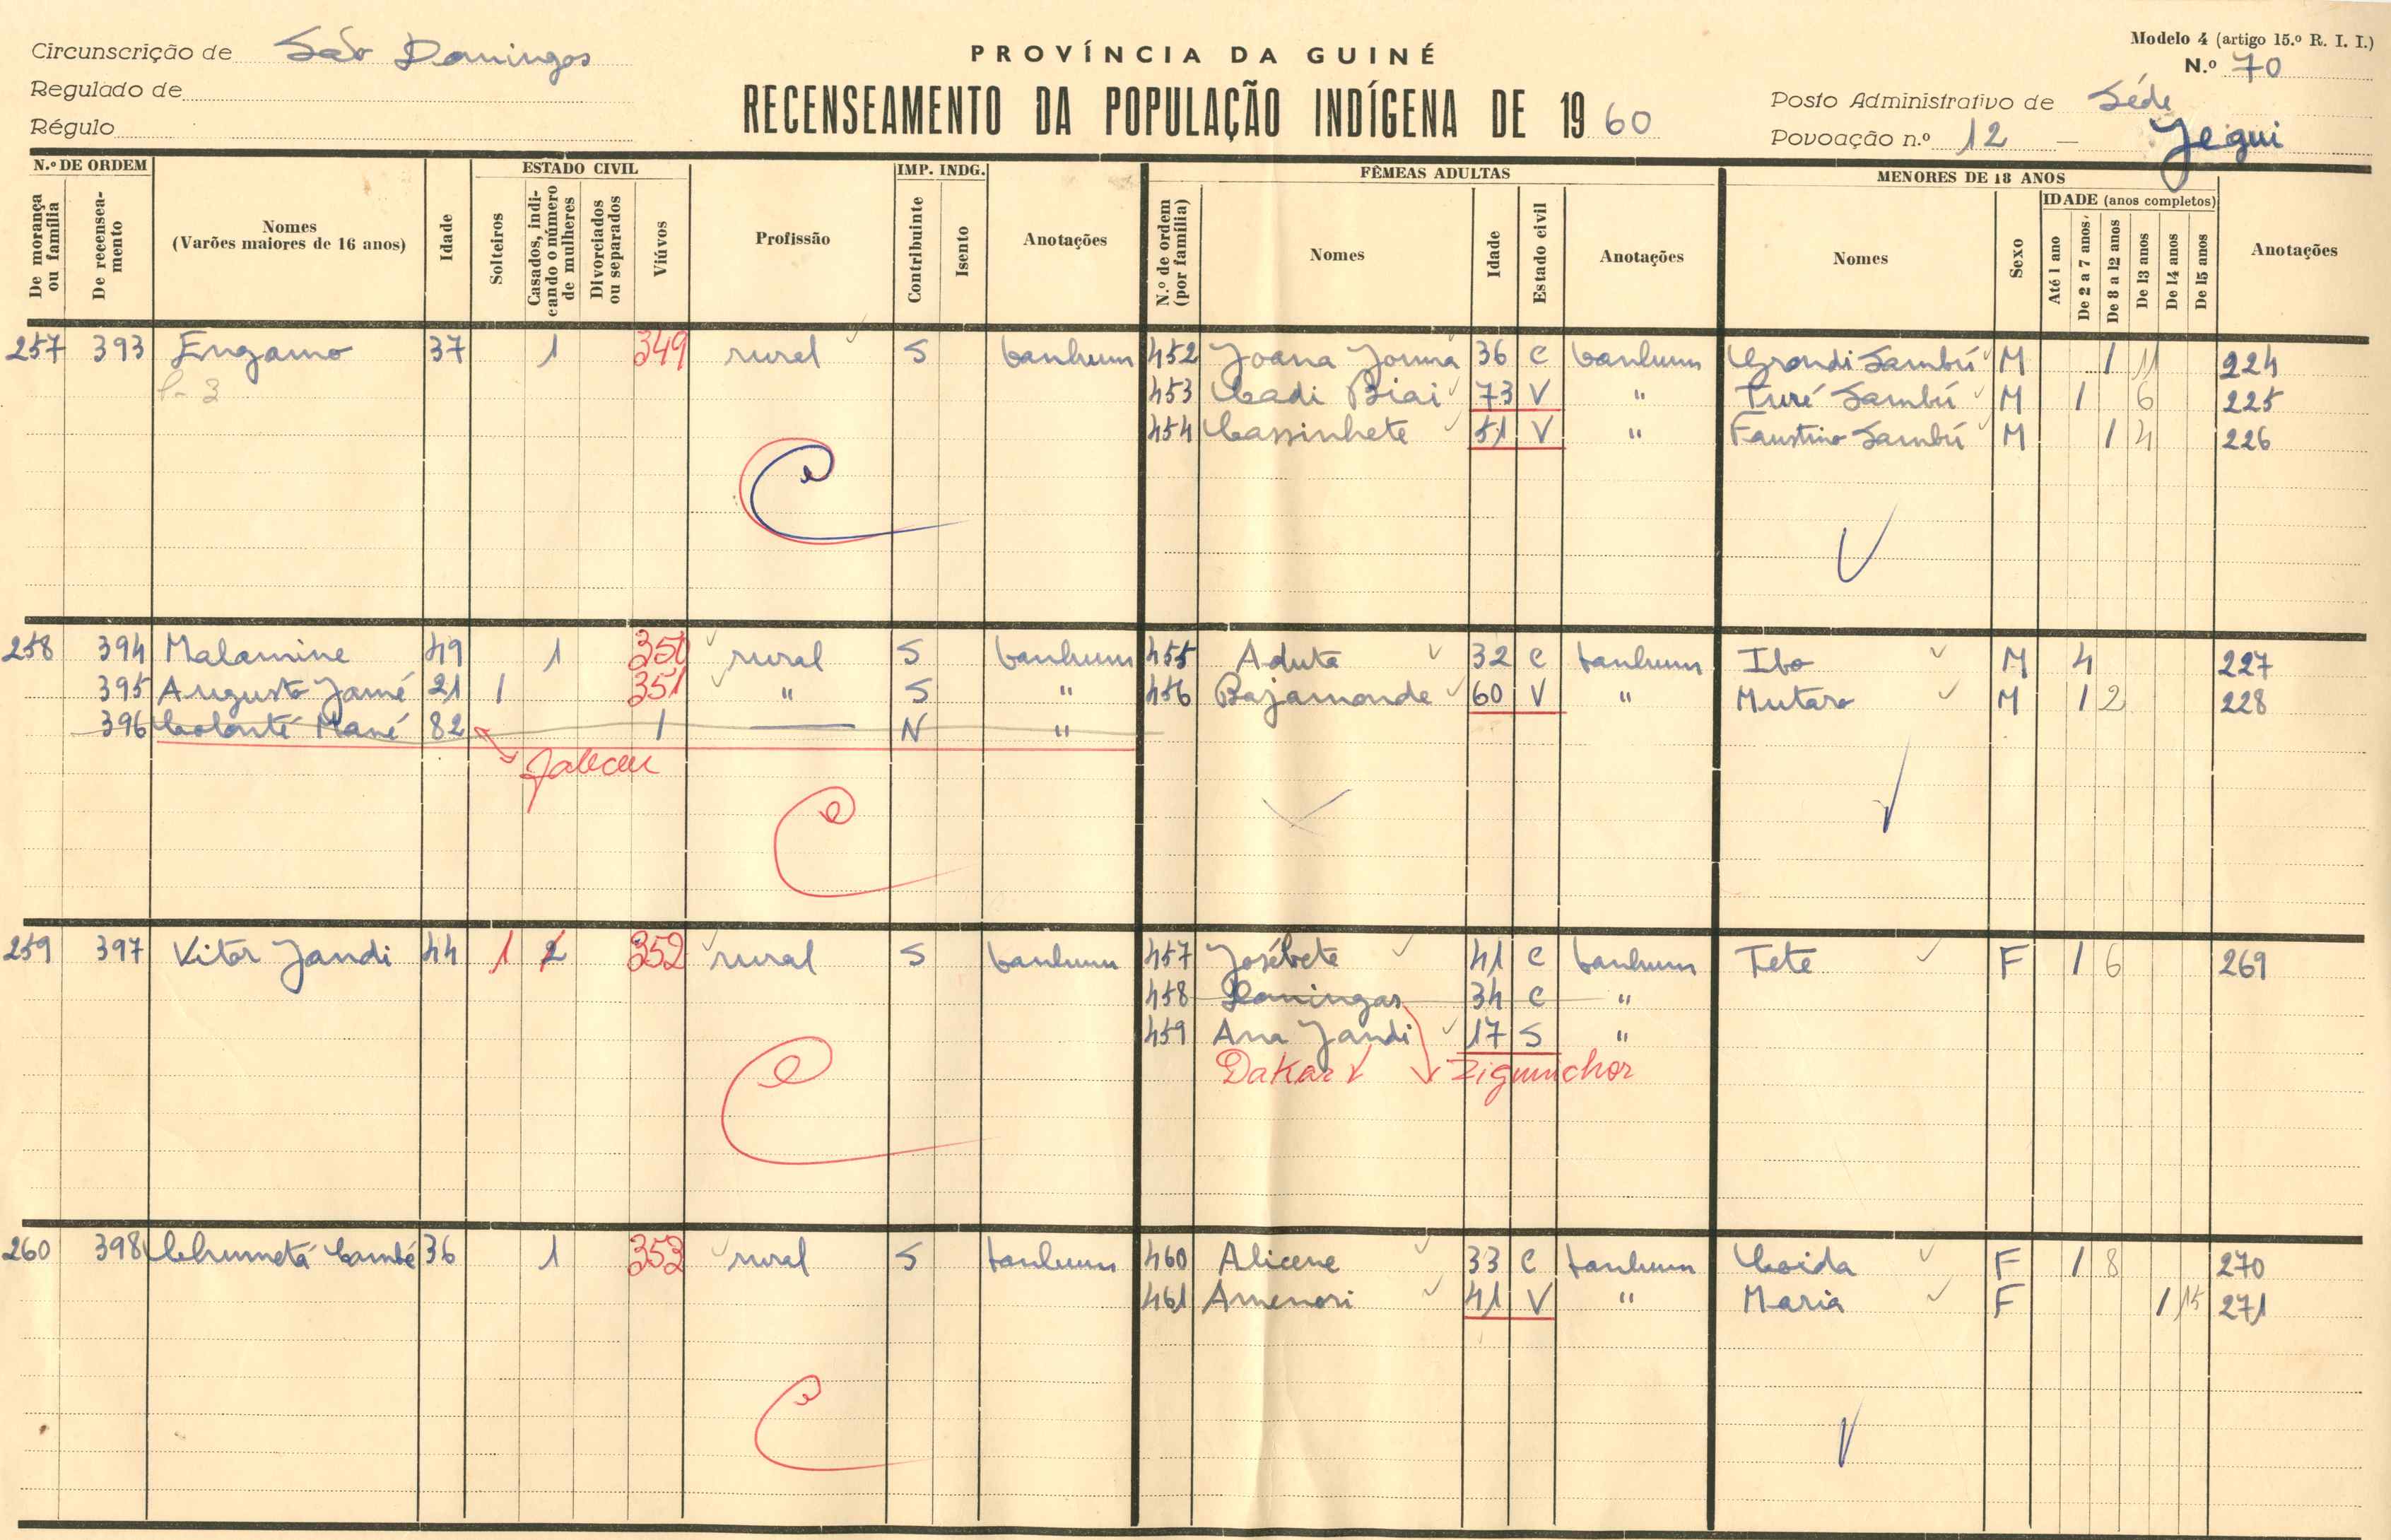 Circunscrição de São Domingos
Regulado de
Régulo
PROVÍNCIA DA GUINÉ
RECENSEAMENTO DA POPULAÇÃO INDÍGENA DE 1960
Modelo 4 (artigo 15.º R. I. I.)
N.º 70
Posto Administrativo de Séde
Povoação n.º 12 — Jegui
N.º DE ORDEM
De morança ou família
De recenseamento
Nomes
(Varões maiores de 16 anos)
Idade
ESTADO CIVIL
Solteiros
Casados, indicando o número de mulheres
Divorciados ou separados
Viúvos
Profissão
IMP. INDG.
Contribuinte
Isento
Anotações
FÊMEAS ADULTAS
N.º de ordem (por família)
Nomes
Idade
Estado civil
Anotações
MENORES DE 18 ANOS
Nomes
Sexo
IDADE (anos completos)
Até 1 ano
De 2 a 7 anos
De 8 a 12 anos
De 13 anos
De 14 anos
De 15 anos
Anotações
257 393 Engamo 37 1 349 rural S banhum 452 Joana 36 C banhum Sambú M 1 11 224
453 Cadi Biai 73 V " Turé Sambú M 1 6 225
454 Cassinhete 51 V " Faustino Sambú M 1 226
258 394 Malamine 49 1 350 rural S banhum 455 Aduta 32 C banhum Ibo M 4 227
395 Augusto Jamé 21 1 351 " S " 456 Bajamonde 60 V " Mutaro M 1 2 228
396 Mané 82 1 — N "
faleceu
259 397 Vitor Jandi 44 1 2 352 rural S banhum 457 Josébete 41 C banhum Tete F 1 6 269
458 Domingas 34 C "
459 Ana Jandi 17 S "
Dakar Ziguinchor
260 398 Chumetá Cambé 36 1 353 rural S banhum 460 Alicene 33 C banhum Caida F 1 8 270
461 Amenori 41 V " Maria F 1 15 271